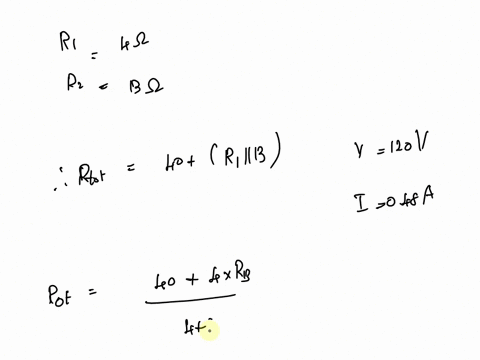 R1 = 4Ω
R2 = 13Ω
∴ Rtot = 40 + (R1 || 13)
V = 120 V
I = 0.48 A
Rot = 40 + 4 × R13
4+